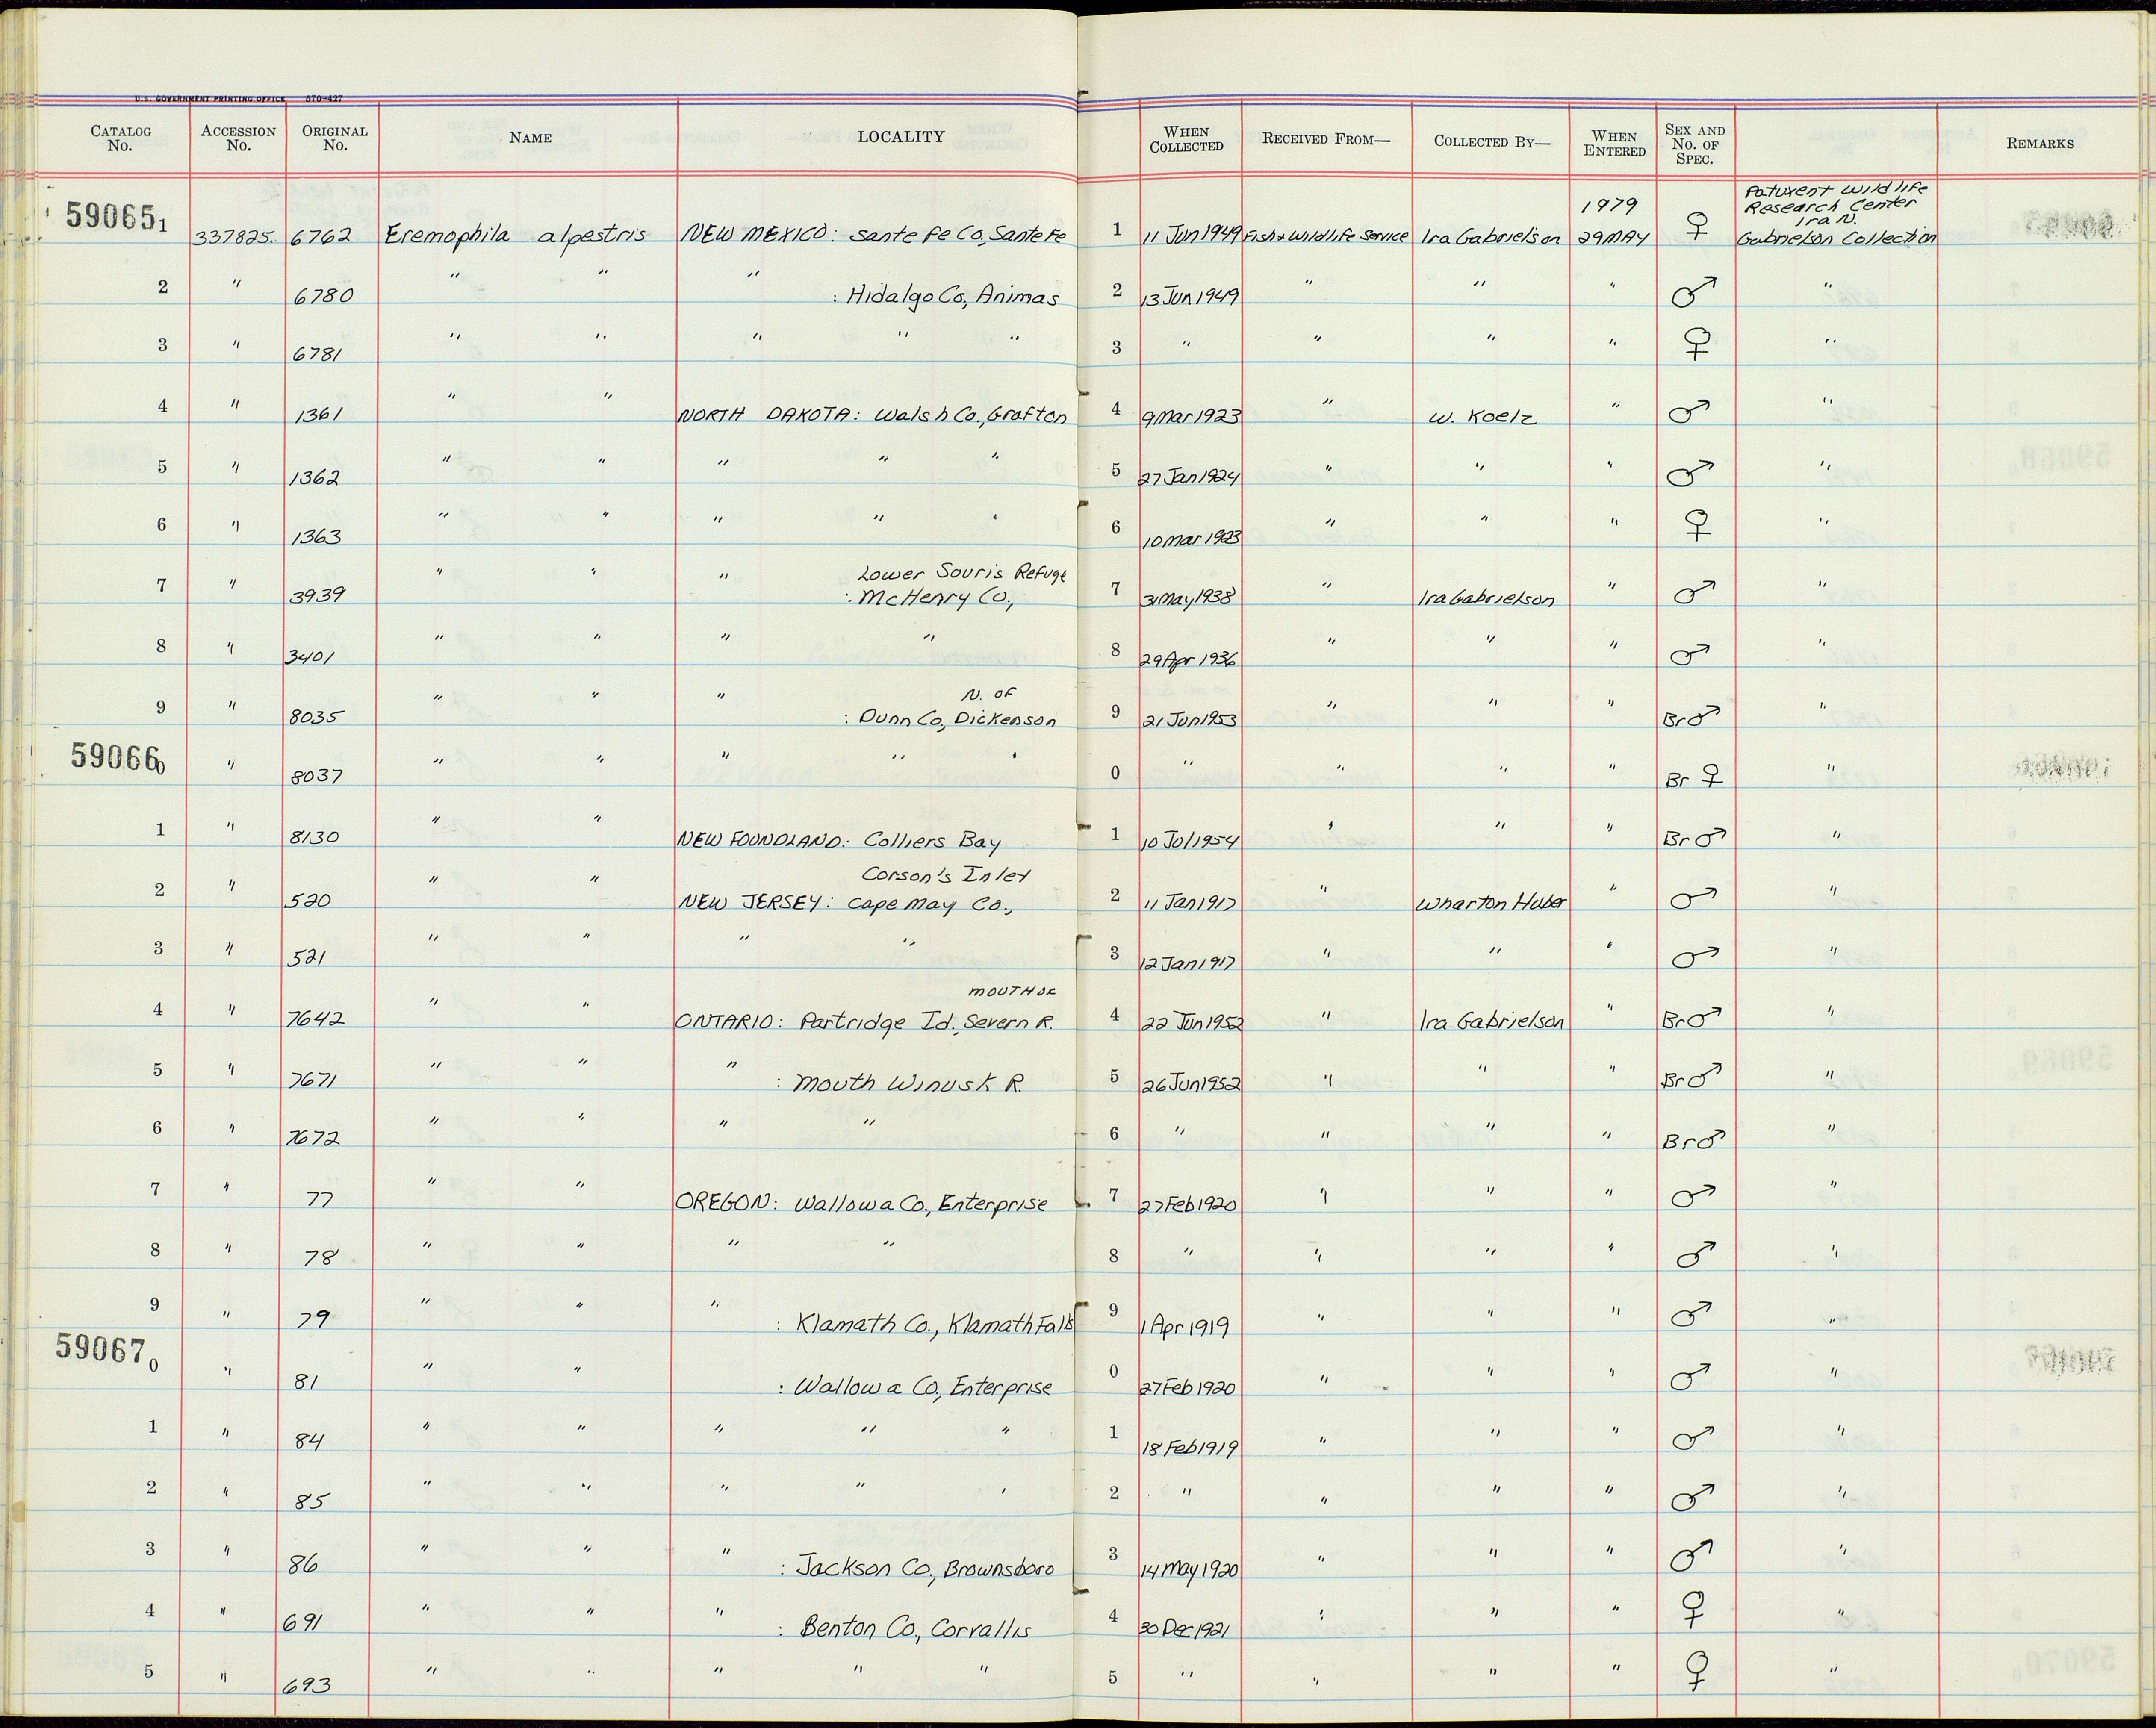 U.S. GOVERNMENT PRINTING OFFICE 570-427
CATALOG No. ACCESSION No. ORIGINAL No. NAME LOCALITY WHEN COLLECTED RECEIVED FROM— COLLECTED BY— WHEN ENTERED SEX AND No. OF SPEC. REMARKS
590651 337825. 6762 Eremophila alpestris NEW MEXICO: Sante Fe Co, Sante Fe 1 11 Jun 1949 Fish & Wildlife Service Ira Gabrielson 1979 29 MAY ♀ Patuxent Wildlife Research Center Ira N. Gabrielson Collection
2 " 6780 " " " : Hidalgo Co, Animas 2 13 Jun 1949 " " " ♂ "
3 " 6781 " " " " " 3 " " " " ♀ "
4 " 1361 " " NORTH DAKOTA: Walsh Co., Grafton 4 9 Mar 1923 " W. Koelz " ♂ "
5 " 1362 " " " " " 5 27 Jan 1924 " " " ♂ "
6 " 1363 " " " " " 6 10 Mar 1923 " " " ♀ "
7 " 3939 " " " : McHenry Co., Lower Souris Refuge 7 31 May 1938 " Ira Gabrielson " ♂ "
8 " 3401 " " " " 8 29 Apr 1936 " " " ♂ "
9 " 8035 " " " : Dunn Co, N. of Dickenson 9 21 Jun 1953 " " " Br ♂ "
590660 " 8037 " " " " " 0 " " " " Br ♀ "
1 " 8130 " " NEW FOUNDLAND: Colliers Bay 1 10 Jul 1954 " " " Br ♂ "
2 " 520 " " NEW JERSEY: Cape May Co., Corson's Inlet 2 11 Jan 1917 " Wharton Huber " ♂ "
3 " 521 " " " " 3 12 Jan 1917 " " " ♂ "
4 " 7642 " " ONTARIO: Partridge Id., MOUTH OF Severn R. 4 22 Jun 1952 " Ira Gabrielson " Br ♂ "
5 " 7671 " " " : Mouth Winusk R. 5 26 Jun 1952 " " " Br ♂ "
6 " 7672 " " " " 6 " " " " Br ♂ "
7 " 77 " " OREGON: Wallowa Co., Enterprise 7 27 Feb 1920 " " " ♂ "
8 " 78 " " " " 8 " " " " ♂ "
9 " 79 " " " : Klamath Co., Klamath Falls 9 1 Apr 1919 " " " ♂ "
590670 " 81 " " : Wallowa Co, Enterprise 0 27 Feb 1920 " " " ♂ "
1 " 84 " " " " " 1 18 Feb 1919 " " " ♂ "
2 " 85 " " " " " 2 " " " " ♂ "
3 " 86 " " " : Jackson Co., Brownsboro 3 14 May 1920 " " " ♂ "
4 " 691 " " " : Benton Co., Corvallis 4 30 Dec 1921 " " " ♀ "
5 " 693 " " " " " 5 " " " " ♀ "